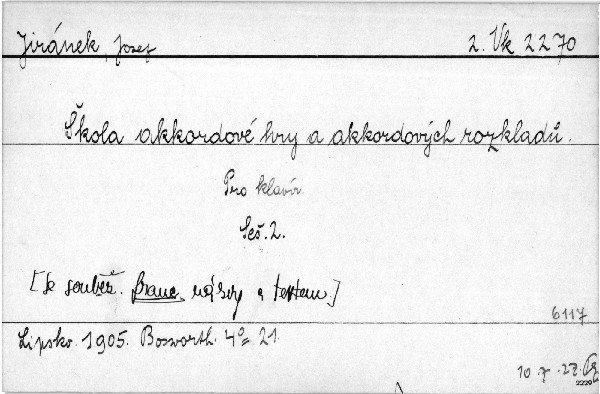 Jiránek, Josef 2. Vk 2270
Škola akkordové hry a akkordových rozkladů.
Pro klavír.
Seš. 2.
[Se souběž. franc. názvy a textem.]
6117
Lipsko. 1905. Bosworth. 4° 21.
10.7.27.
2220